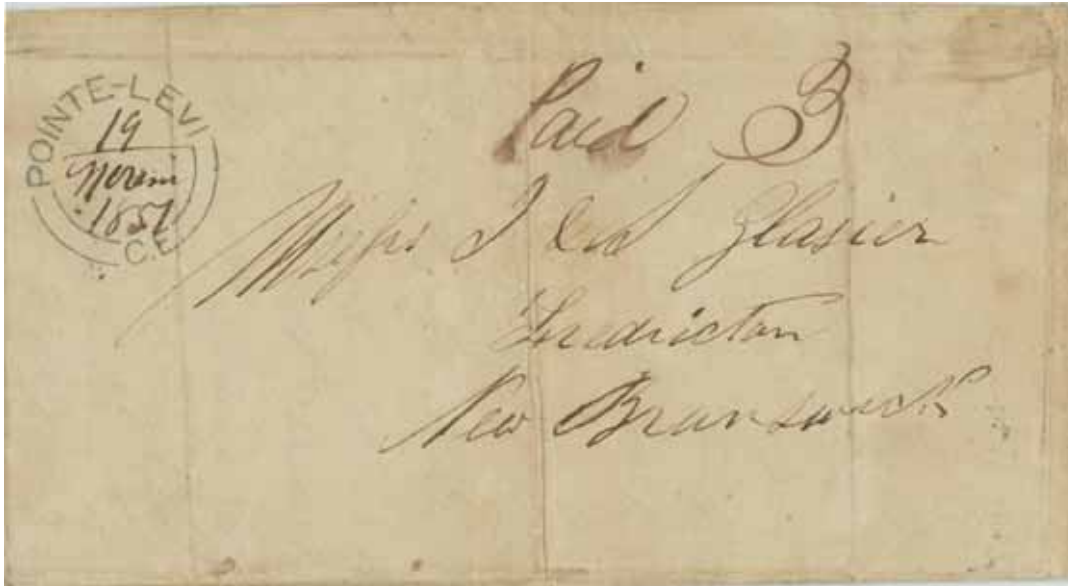 POINTE-LEVI
19
Novem
1851
C.E
Paid 3
Messrs J & S Glasier
Fredricton
New Brunswick